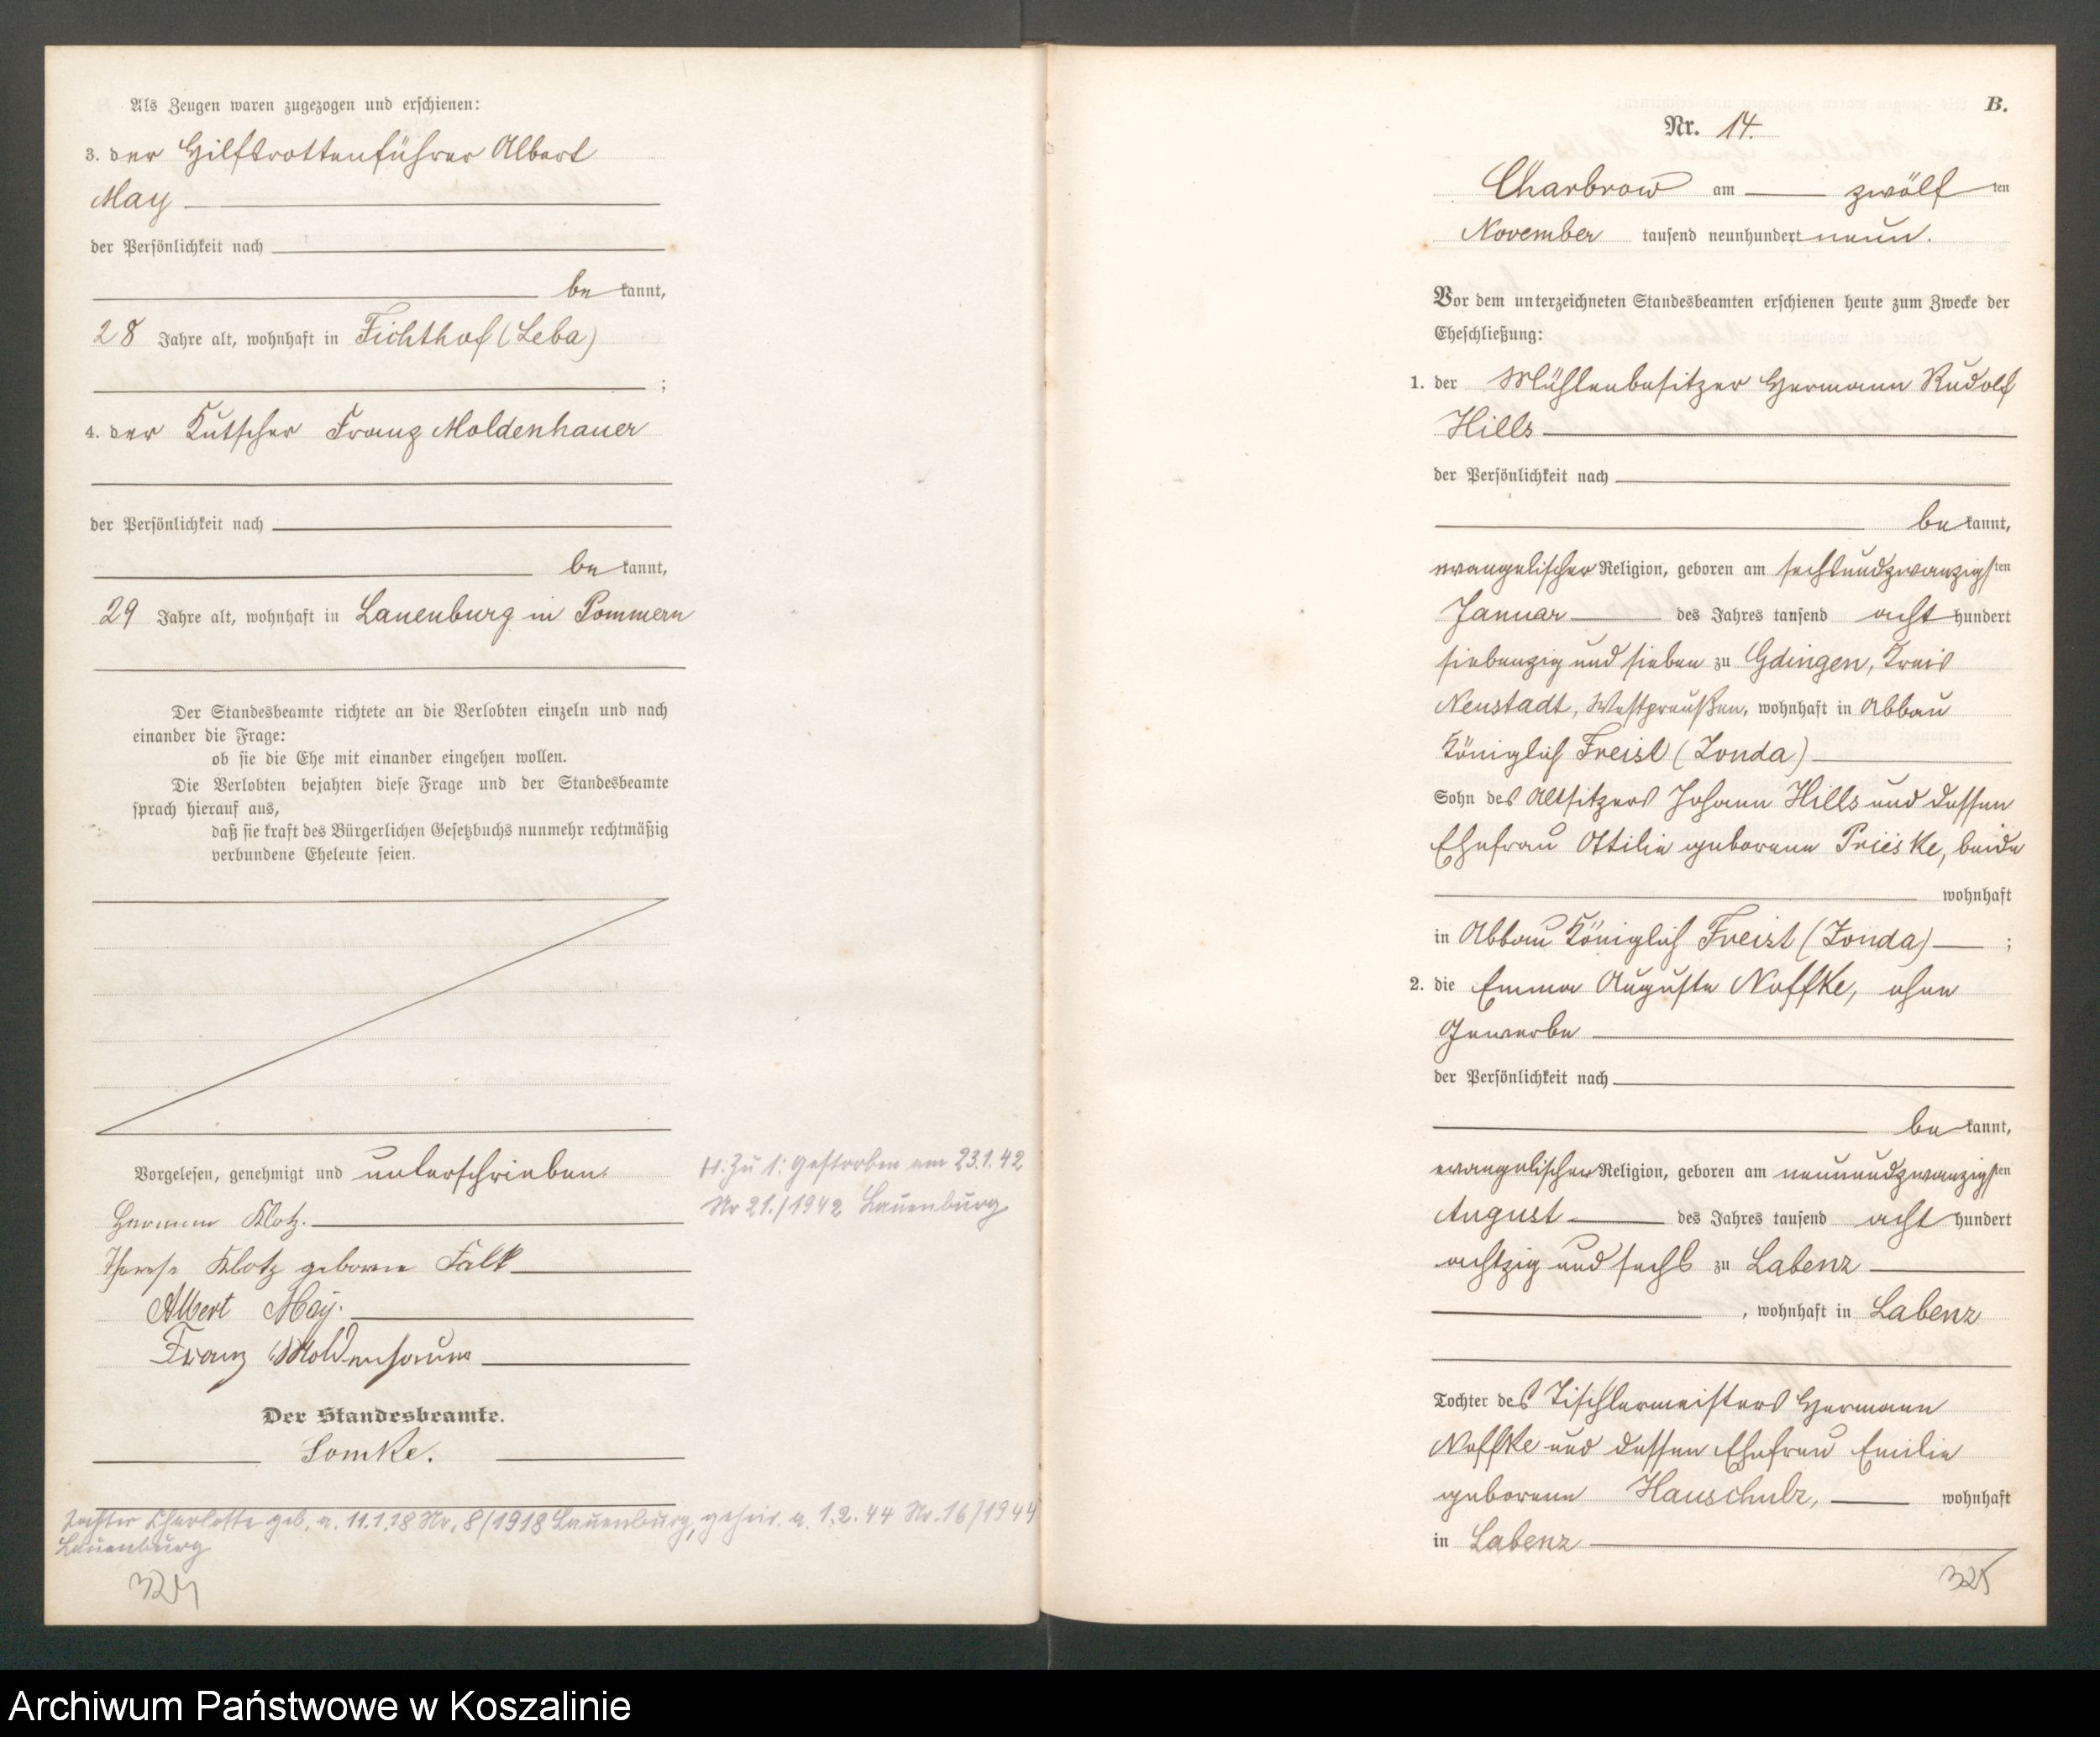 Als Zeugen waren zugezogen und erschienen:
3. der Hilfsrottenführer Albert
May
der Persönlichkeit nach
be kannt,
28 Jahre alt, wohnhaft in Fichthof (Leba)
;
4. der Kutscher Franz Moldenhauer
der Persönlichkeit nach
be kannt,
29 Jahre alt, wohnhaft in Lauenburg in Pommern
Der Standesbeamte richtete an die Verlobten einzeln und nach
einander die Frage:
ob sie die Ehe mit einander eingehen wollen.
Die Verlobten bejahten diese Frage und der Standesbeamte
sprach hierauf aus,
daß sie kraft des Bürgerlichen Gesetzbuchs nunmehr rechtmäßig
verbundene Eheleute seien.
Vorgelesen, genehmigt und unterschrieben.
Hermann Klotz.
Therese Klotz geborene Falk
Albert May.
Franz Moldenhauer
Der Standesbeamte.
Lomke.
H: Zu 1: Gestorben am 23.1.42
Nr 21./1942 Lauenburg
Tochter Charlotte geb. a. 11.1.18 Nr. 8/1918 Lauenburg, geheir. a. 1.2.44 Nr. 16/1944
Lauenburg
324
B.
Nr. 14.
Charbrow am zwölf ten
November tausend neunhundert neun.
Vor dem unterzeichneten Standesbeamten erschienen heute zum Zwecke der
Eheschließung:
1. der Mühlenbesitzer Hermann Rudolf
Hills
der Persönlichkeit nach
be kannt,
evangelischer Religion, geboren am sechsundzwanzigsten
Januar des Jahres tausend acht hundert
siebenzig und sieben zu Gdingen, Kreis
Neustadt, Westpreußen, wohnhaft in Abbau
Königlich Freist (Zonda)
Sohn des Altsitzers Johann Hills und dessen
Ehefrau Ottilie geborene Prieske, beide
wohnhaft
in Abbau Königlich Freist (Zonda) ;
2. die Emma Auguste Noffke, ohne
Gewerbe
der Persönlichkeit nach
be kannt,
evangelischer Religion, geboren am neunundzwanzigsten
August des Jahres tausend acht hundert
achtzig und sechs zu Labenz
, wohnhaft in Labenz
Tochter des Tischlermeisters Hermann
Noffke und dessen Ehefrau Emilie
geborene Hauschulz, wohnhaft
in Labenz
325
Archiwum Państwowe w Koszalinie